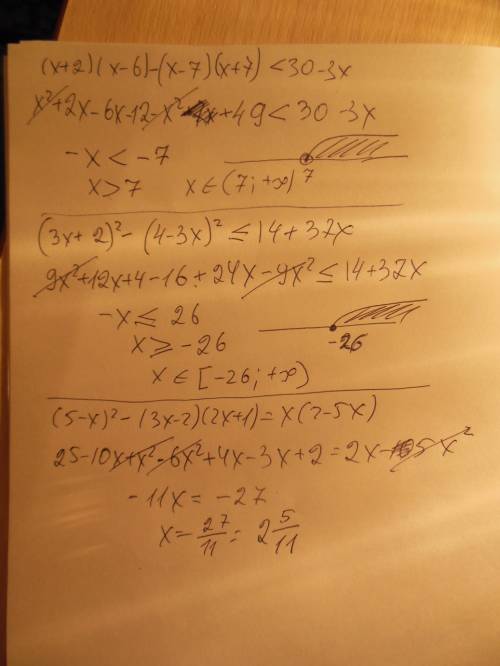 (x+2)(x-6)-(x-7)(x+7)<30-3x
x²+2x-6x-12-x²+49<30-3x
-x<-7
x>7 x∈(7;+∞) 7
(3x+2)²-(4-3x)²≤14+37x
9x²+12x+4-16+24x-9x²≤14+37x
-x≤26
x≥-26
-26
x∈[-26;+∞)
(5-x)²-(3x-2)(2x+1)=x(2-5x)
25-10x+x²-6x²+4x-3x+2=2x-5x²
-11x=-27
x=27/11=2 5/11